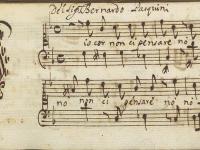 Del Sig.r Bernardo Pasquini
io cor non ci pensare nò
no non ci pensare nò nò